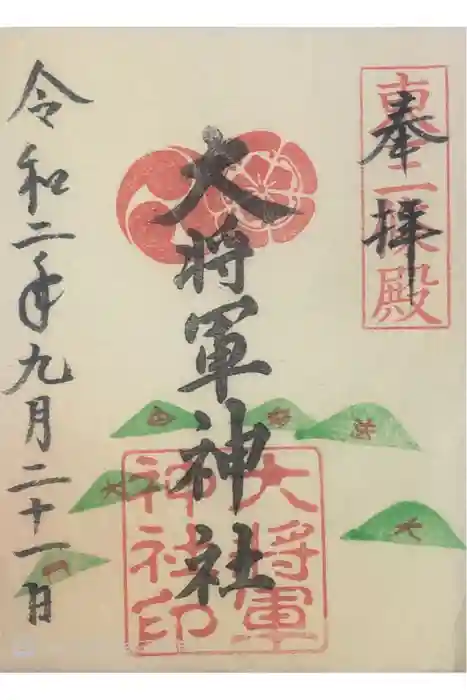 奉拝
東三條殿
大将軍神社
大将軍
神社印
令和二年九月二十一日
妙
法
大
大